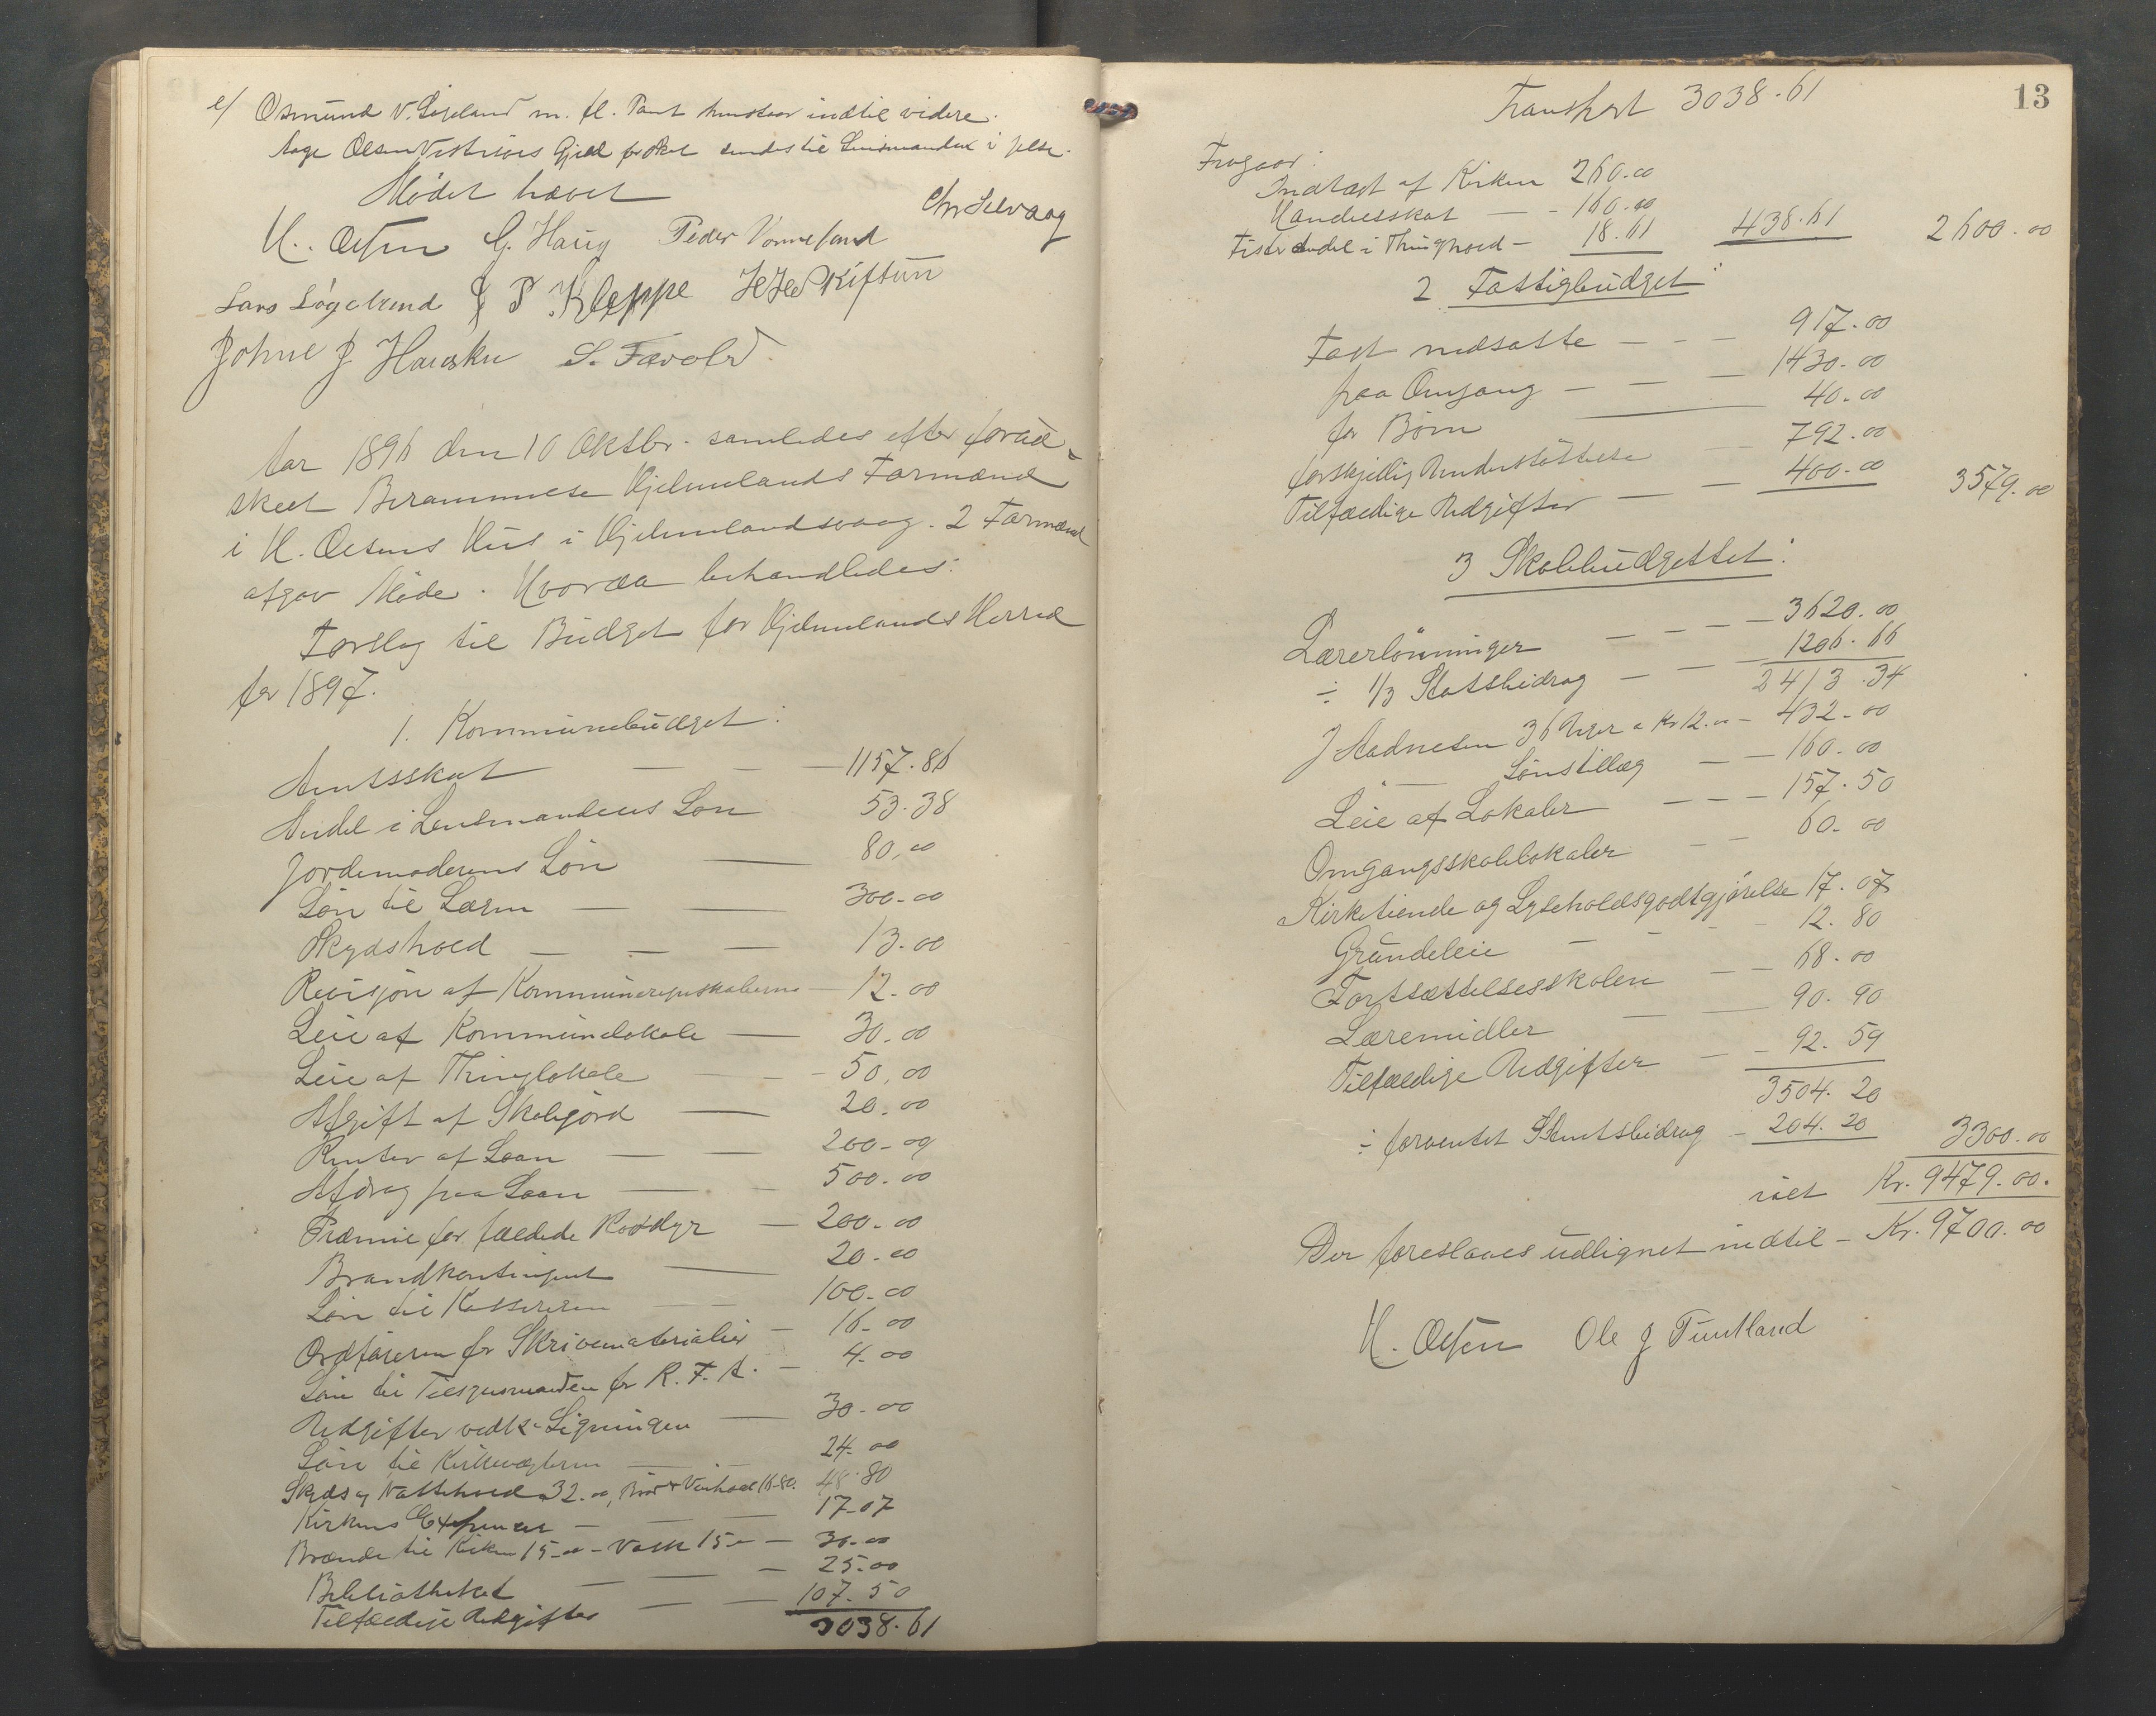 e/ Osmund V. m. fl. indtil videre.
Aage Olsen Gjæld for Skat sendes til Lensmanden i Jelse.
Mødet hævet
Chr Selvaag
H. Olsen G. Haug Peder Vormeland
Lars Løgelrend J P Kleppe
Johne J. Hauske S. Tævold
Aar 1896 den 10 Oktbr. samledes efter forud
skeet Berammelse Hjelmelands Formænd
i H. Olsens Hus i Hjelmelandsvaag. 2 Formænd
afgav Møde. Hvorda behandledes:
Forslag til Budget for Hjelmelands Herred
for 1897.
1. Kommunebudget:
Amtsskat — — — 1157.86
Andel i Lensmandens Løn 53.38
Jordemoderens Løn — 80,00
Løn til — — 300.00
Skydshold — — — 13.00
Revisjon af Kommuneregnskaberne — 12.00
Leie af Kommunelokale — 30.00
Leie af Thinglokale — — 50,00
Afgift af Skolejord — 20.00
Renter af Laan — — 200.00
Afdrag paa Laan — — 500.00
Præmie for fældede Rovdyr — 200.00
Brandkontingent — 20.00
Løn til Kassereren — — 100.00
Ordføreren for Skrivematerialier — 16.00
Løn til Tilsynsmanden for R. F. A. — 4.00
Udgifter vedk. Ligningen — 30.00
Løn til — — 24.00
Skyds og Nattehold 32.00, Brød & Vinhold 16.80. 48.80
Kirkens Expenser — — — 17.07
Brænde til Kirken 15.00 - Vask 15.- — 30.00
Bibliotheket — — — 25.00
Tilfældige Udgifter — — 107.50
3038.61
13
Transport 3038.61
Fragaar:
Indtægt af Kirken 260.00
Handelsskat — - 160.00
Andel i Thinghold — 18.61 438.61 2600.00
2 Fattigbudget:
Fast nedsatte — — — 917.00
paa Omgang — — — 1430.00
for Børn — 40.00
forskjellig Understøttelse — 792.00
Tilfældige Udgifter — — 400.00 3579.00
3 Skolebudgettet:
Lærerlønninger — — — — 3620.00
÷ 1/3 Statsbidrag — — — 1206.66
2413.34
J Aadnesen 36 Uger a Kr 12.00 — 432.00
" — Lønstillæg — — 160.00
Leie af Lokaler — — — 157.50
Omgangsskolelokaler — — 60.00
Kirketiende og Lyseholdsgodtgjørelse 17.07
Grundeleie — — — — 12.80
Fortsættelsesskolen — — 68.00
Læremidler — — 90.90
Tilfældige Udgifter — — 92.59
3504.20
÷ forventet Amtsbidrag — 204.20 3300.00
ialt Kr. 9479.00.
Der foreslaaes udlignet indtil — Kr. 9700.00
H. Olsen Ole J Tuntland